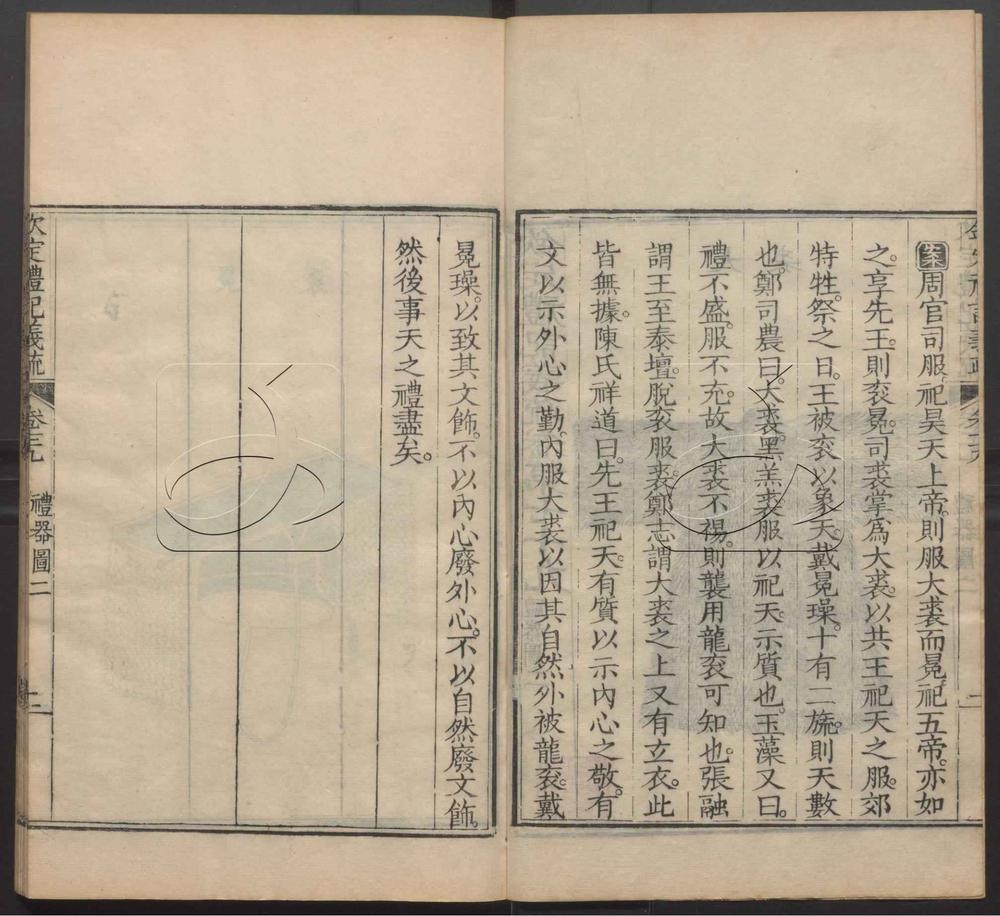 案周官司服祀昊天上帝則服大裘而冕祀五帝亦如
之享先王則衮冕司裘掌爲大裘以共王祀天之服郊
特牲祭之日王被衮以象天戴冕璪十有二旒則天數
也鄭司農曰大裘黑羔裘服以祀天示質也玉藻又曰
禮不盛服不充故大裘不裼則襲用龍衮可知也張融
謂王至泰壇脫衮服裘鄭志謂大裘之上又有玄衣此
皆無據陳氏祥道曰先王祀天有質以示內心之敬有
文以示外心之勤內服大裘以因其自然外被龍衮戴
冕璪以致其文飾不以內心廢外心不以自然廢文飾
然後事天之禮盡矣
欽定禮記義疏 卷 禮器圖二 二